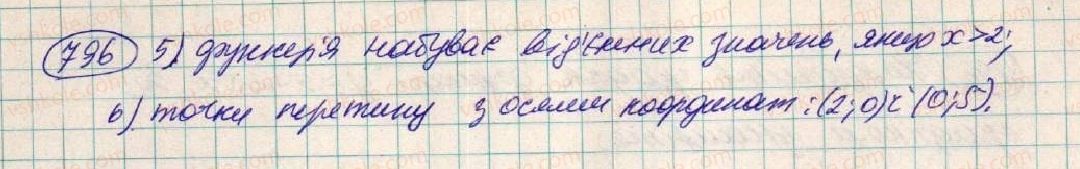 796 5) функція набуває від'ємних значень, якщо x>2;
6) точки перетину з осями координат: (2;0) і (0;5).